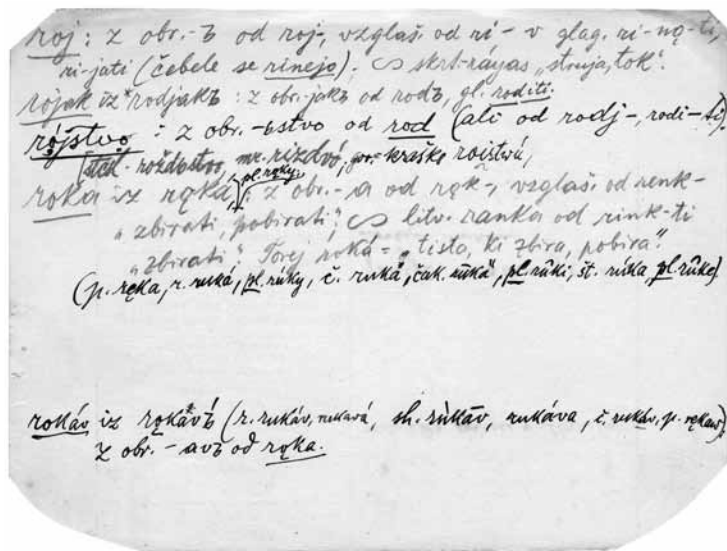 roj : z obr. -ъ od roj-, vzglaš. od ri- v glag. ri-nǫ-ti,
ri-jati (čebele se rinejo). ∽ skrt. rayas „struja, tok".
rojak iz *rodjakъ : z obr. -jakъ od rodъ, gl. roditi.
rójstvo : z obr. -ьstvo od rod (ali od rodj-, rodi-ti)
(stsl. roždьstvo, mr. rizdvó, kraške roistwú,
pl. rǫky,
roka iz rǫka : z obr. -a od rǫk-, vzglaš. od renk-
„zbirati, pobirati", ∽ litv. ranka od rink-ti
„zbirati". Torej roká = „tisto, ki zbira, pobira".
(p. ręka, r. ruká, pl. rúky, č. ruka, čak. rūkȁ, pl. rûki, št. rúka, pl. rûke)
rokáv iz rǫkávъ (r. rukáv, rukavá, sh. rùkāv, rukáva, č. rukáv, p. rękaw)
z obr. -avъ od rǫka.